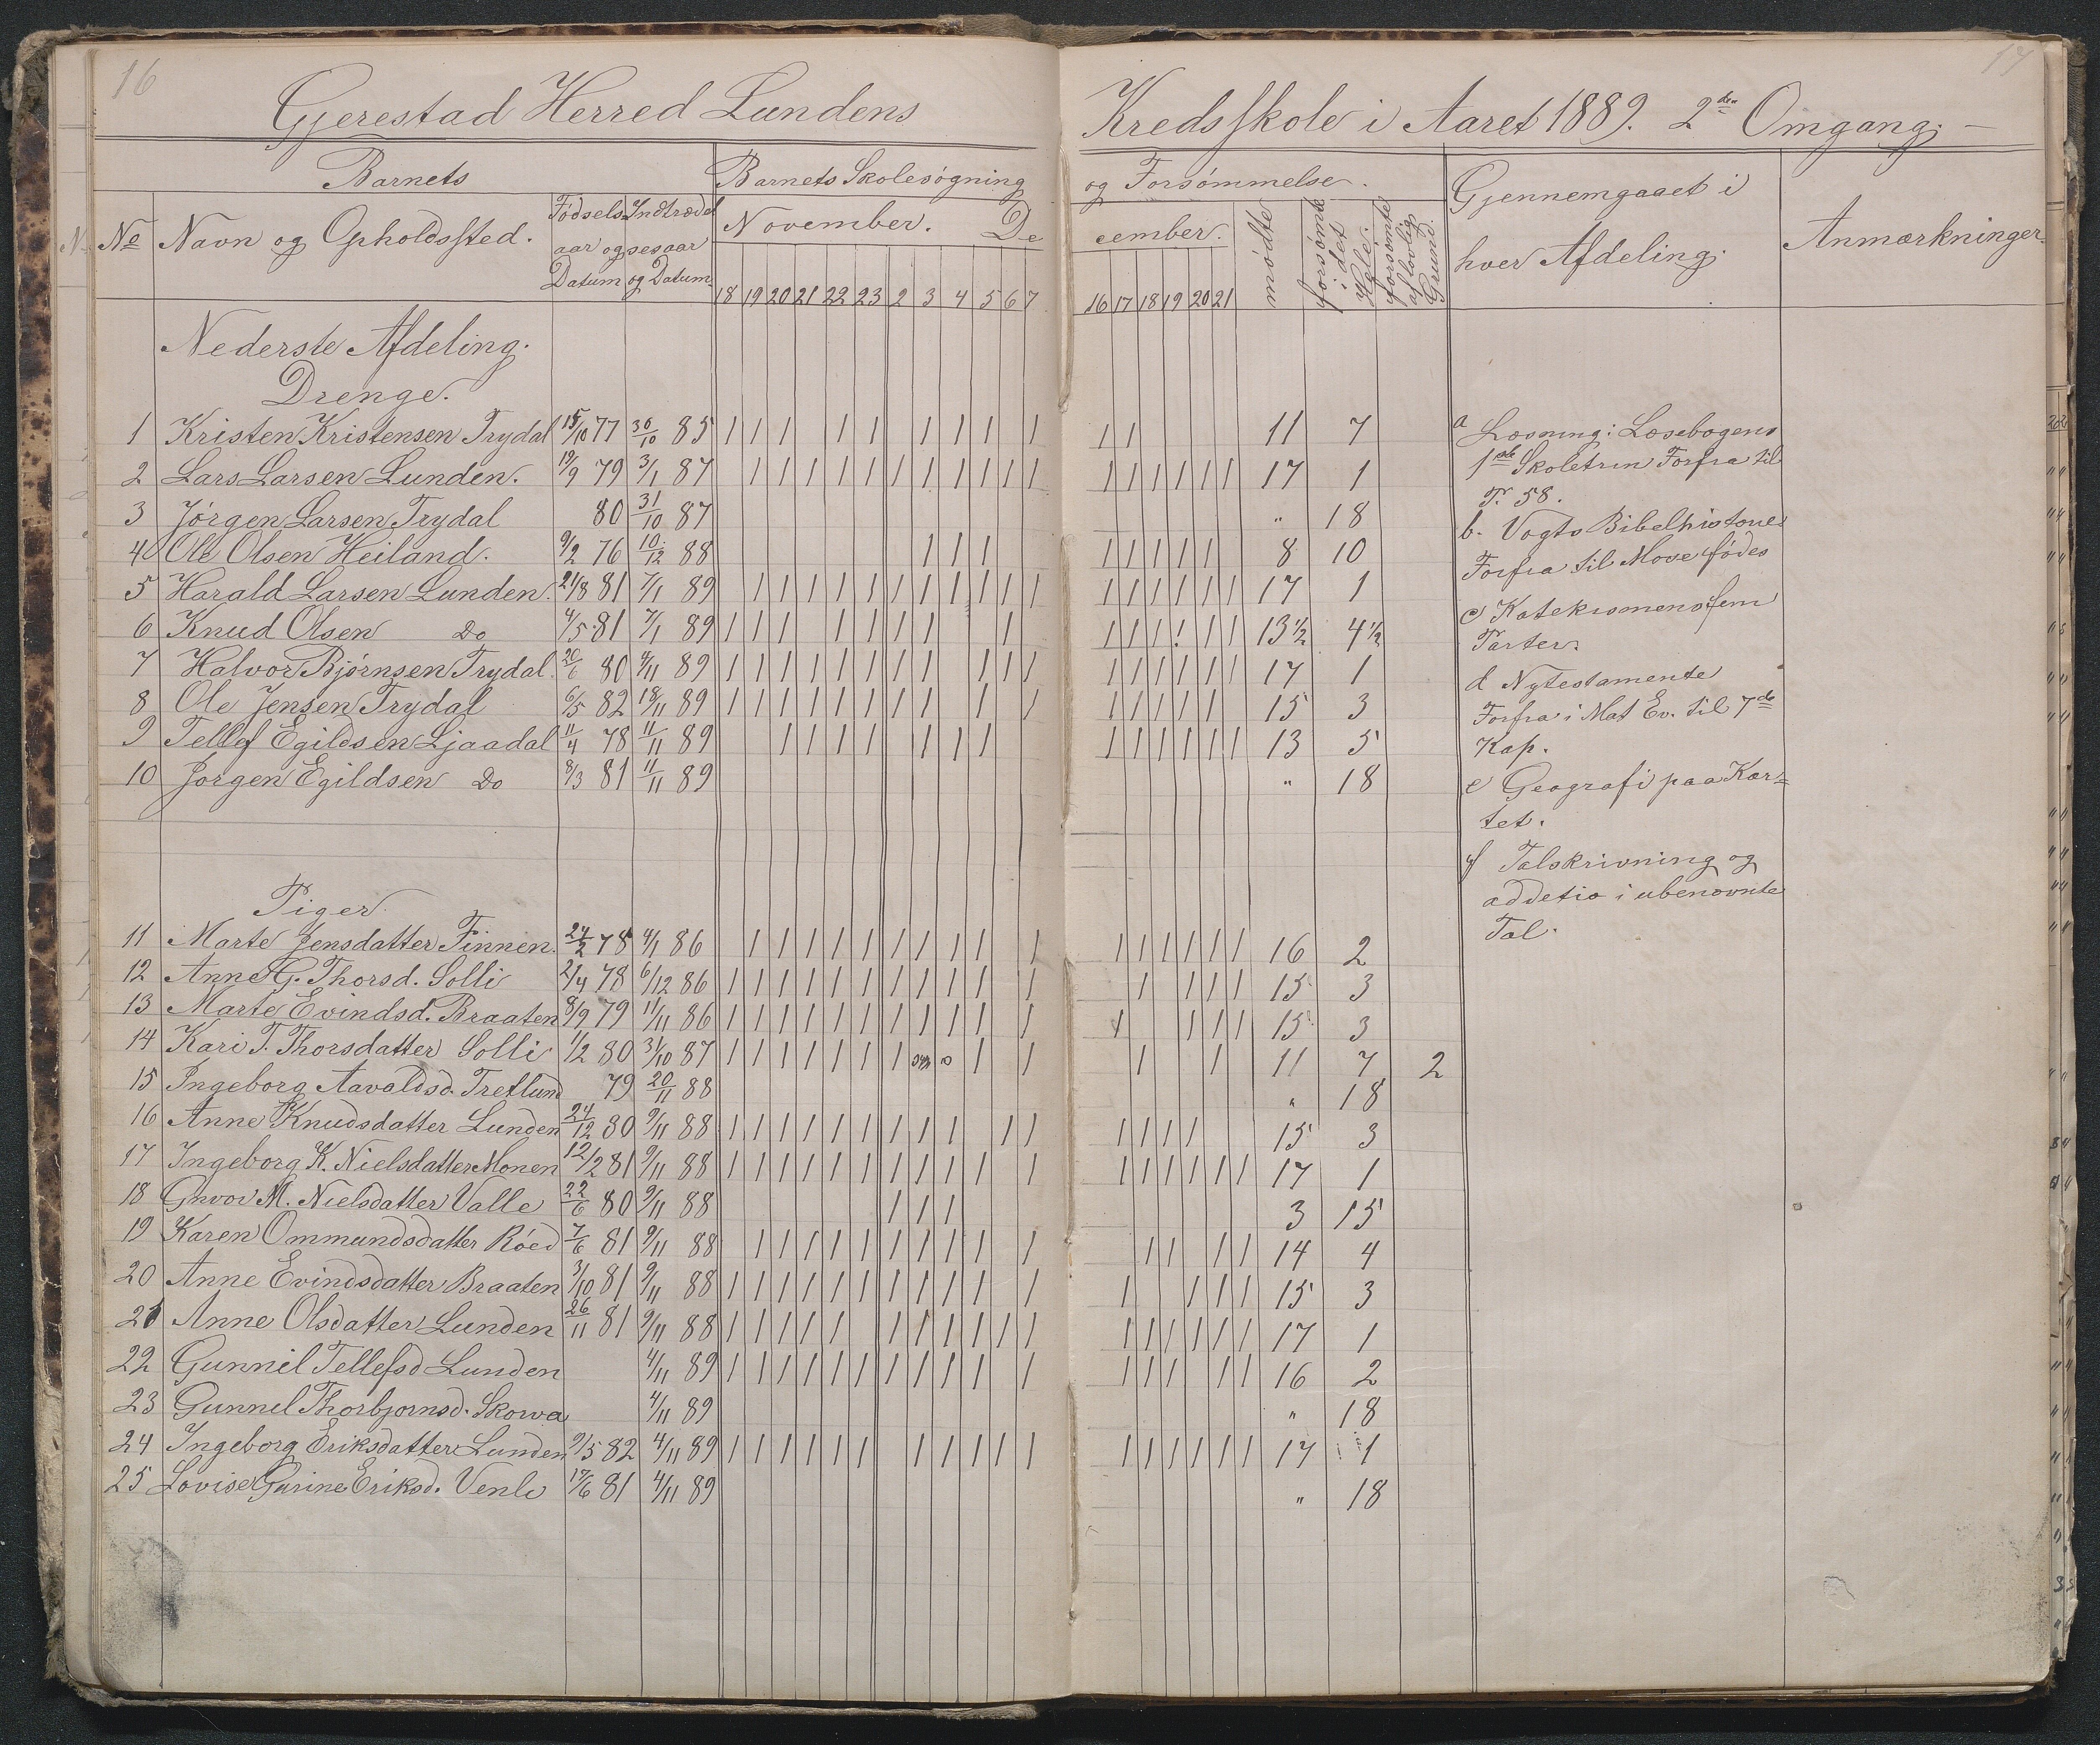 16
17
Gjerestad Herred Lundens Kredsskole i Aaret 1889. 2den Omgang. —
Barnets
Barnets Skolesøgning og Forsømmelse.
Gjennemgaaet i hver Afdeling.
Anmærkninger.
No Navn og Opholdssted. Fødsels aar og Datum Indtrædel sesaar og Datum
November. December. mødte forsømt i det Hele. forsømte af lovlig Grund.
18 19 20 21 22 23 2 3 4 5 6 7 16 17 18 19 20 21
Nederste Afdeling.
Drenge.
1 Kristen Kristensen Trydal 15/10 77 30/10 85 1 1 1 1 1 1 1 1 1 1 1 11 7
2 Lars Larsen Lunden. 19/9 79 3/1 87 1 1 1 1 1 1 1 1 1 1 1 1 1 1 1 1 1 17 1
3 Jørgen Larsen Trydal 80 31/10 87 " 18
4 Ole Olsen Heiland. 9/2 76 10/12 88 1 1 1 1 1 1 1 1 8 10
5 Harald Larsen Lunden. 21/8 81 7/1 89 1 1 1 1 1 1 1 1 1 1 1 1 1 1 1 1 1 17 1
6 Knud Olsen Do 4/5 81 7/1 89 1 1 1 1 1 1 1 1 1 1 1 ! 1 1 13 1/2 4 1/2
7 Halvor Bjørnsen Trydal. 20/6 80 4/11 89 1 1 1 1 1 1 1 1 1 1 1 1 1 1 1 1 1 17 1
8 Ole Jensen Trydal 6/5 82 18/11 89 1 1 1 1 1 1 1 1 1 1 1 1 1 1 1 15 3
9 Tellef Egildsen Ljaadal 11/4 78 11/11 89 1 1 1 1 1 1 1 1 1 1 1 1 1 13 5
10 Jørgen Egildsen Do 8/3 81 11/11 89 " 18
Piger
11 Marte Jensdatter Finnen. 24/2 78 4/1 86 1 1 1 1 1 1 1 1 1 1 1 1 1 1 1 1 16 2
12 Anne G. Thorsd. Solli 2/4 78 6/12 86 1 1 1 1 1 1 1 1 1 1 1 1 1 1 1 15 3
13 Marte Evindsd. Braaten 8/9 79 11/11 86 1 1 1 1 1 1 1 1 1 1 1 1 1 1 1 15 3
14 Kari T. Thorsdatter Solli 1/2 80 31/10 87 1 1 1 1 1 1 1 1 1 1 1 11 7 2
15 Ingeborg Aavaldsd. Treflund 79 20/11 88 " 18
16 Anne Knudsdatter Lunden 24/12 80 9/11 88 1 1 1 1 1 1 1 1 1 1 1 1 1 1 1 15 3
17 Ingeborg K. Nielsdatter Monen 12/2 81 9/11 88 1 1 1 1 1 1 1 1 1 1 1 1 1 1 1 1 1 17 1
18 Gnvor M. Nielsdatter Valle 22/6 80 9/11 88 1 1 1 3 15
19 Karen Ommundsdatter Røed 7/6 81 9/11 88 1 1 1 1 1 1 1 1 1 1 1 1 1 1 14 4
20 Anne Evindsdatter Braaten 3/10 81 9/11 88 1 1 1 1 1 1 1 1 1 1 1 1 1 1 1 15 3
21 Anne Olsdatter Lunden 26/11 81 9/11 88 1 1 1 1 1 1 1 1 1 1 1 1 1 1 1 1 1 17 1
22 Gunnil Tellefsd Lunden 4/11 89 1 1 1 1 1 1 1 1 1 1 1 1 1 1 1 1 16 2
23 Gunnel Thorbjørnsd. Skorva 4/11 89 " 18
24 Ingeborg Eriksdatter Lunden 9/5 82 4/11 89 1 1 1 1 1 1 1 1 1 1 1 1 1 1 1 1 1 17 1
25 Lovise Gurine Eriksd. Venle 17/6 81 4/11 89 " 18
a Læsning: Læsebogens
1ste Skoletrin Forfra til
P. 58.
b. Vogts Bibelhistorie
Forfra til Mose fødes
c Katekismens fem
Parter.
d Nytestamente
Forfra i Mat Ev. til 7de
Kap.
e Geografi paa Kar=
tet.
f Talskrivning og
addetio i ubenævnte
Tal.